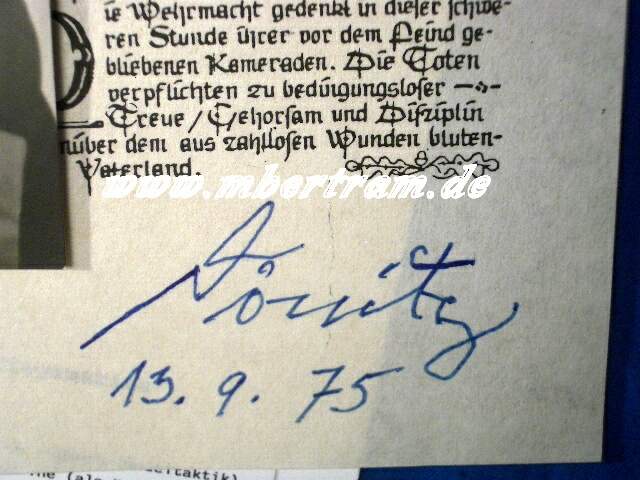 ie Wehrmacht gedenkt in dieser schwe-
ren Stunde ihrer vor dem Feind ge-
bliebenen Kameraden. Die Toten
verpflichten zu bedingungsloser
Treue / Gehorsam und Disziplin
nüber dem aus zahllosen Wunden bluten-
Vaterland.
www.mbertram.de
Dönitz
13. 9. 75